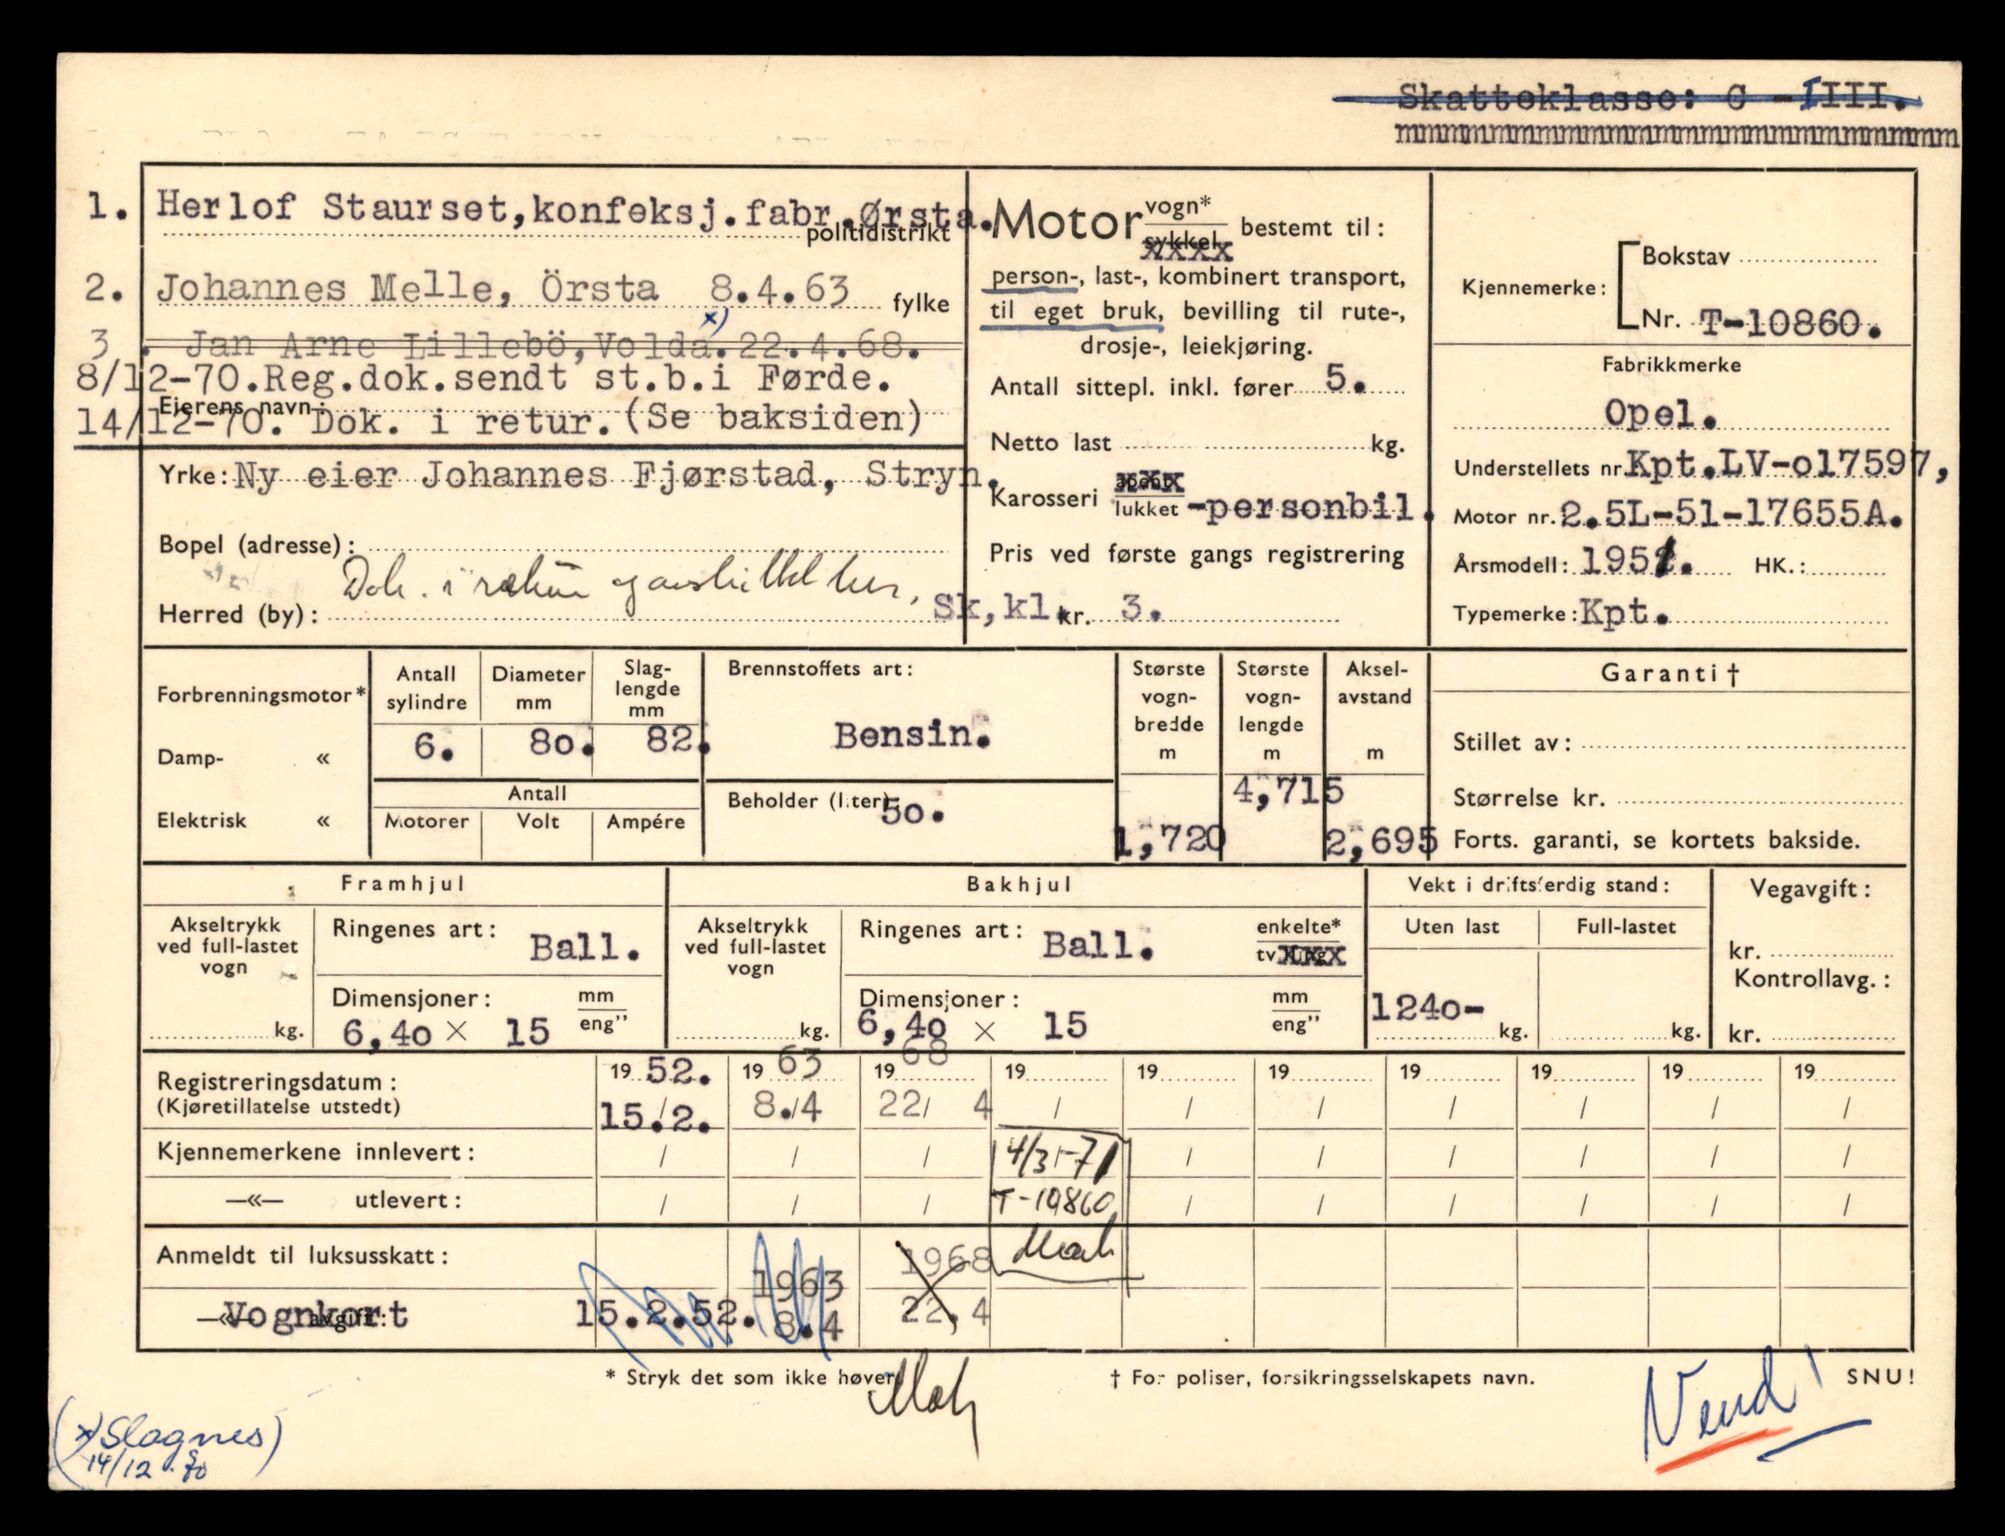 Skatteklasse: C -IIII.
mmmmmmmmmmmmmmmmmmmmmmmmmmm
1. Herlof Staurset, konfeksj.fabr. Ørsta.
politidistrikt
2. Johannes Melle, Örsta 8.4.63
fylke
x)
3. Jan Arne Lillebö, Volda. 22.4.68.
8/12-70. Reg.dok.sendt st.b.i Førde.
Eierens navn:
14/12-70. Dok. i retur. (Se baksiden)
Yrke: Ny eier Johannes Fjørstad, Stryn.
Bopel (adresse):
Dok. i retur
Herred (by):
Motor vogn*
sykkel xxxx bestemt til:
person-, last-, kombinert transport,
til eget bruk, bevilling til rute-,
drosje-, leiekjøring.
Antall sittepl. inkl. fører 5.
Netto last kg.
Karosseri åpent xxx
lukket -personbil.
Pris ved første gangs registrering
Sk,kl. kr. 3.
Kjennemerke: Bokstav
Nr. T-10860.
Fabrikkmerke
Opel.
Understellets nr. Kpt.LV-o17597,
Motor nr. 2.5L-51-17655A.
Årsmodell: 1951. HK.:
Typemerke: Kpt.
Forbrenningsmotor*
Damp- «
Elektrisk «
Antall sylindre
6.
Diameter mm
8o.
Slag-lengde mm
82.
Antall
Motorer Volt Ampére
Brennstoffets art:
Bensin.
Beholder (liter) 5o.
Største vogn-bredde m
1,720
Største vogn-lengde m
4,715
Aksel-avstand m
2,695
Garanti †
Stillet av:
Størrelse kr.
Forts. garanti, se kortets bakside.
Framhjul
Akseltrykk ved full-lastet vogn
kg.
Ringenes art: Ball.
Dimensjoner: mm
6,4o × 15 eng”
Bakhjul
Akseltrykk ved full-lastet vogn
kg.
Ringenes art: Ball. enkelte*
tvilling xxxx
Dimensjoner: mm
6,4o × 15 eng”
Vekt i driftsferdig stand:
Uten last Full-lastet
124o- kg. kg.
Vegavgift:
kr.
Kontrollavg.:
kr.
Registreringsdatum: 19 52. 19 63 19 68 19 19 19 19 19 19 19
(Kjøretillatelse utstedt) 15./2. 8./4 22/ 4 / / / / / / /
Kjennemerkene innlevert: / / / 4/31-71 / / / / / /
—«— utlevert: / / / T-10860 / / / / / /
Anmeldt til luksusskatt: 1963 1968
—«— avgift: Vognkort 15.2.52. 8.4 22,4
* Stryk det som ikke høver.
† For poliser, forsikringsselskapets navn.
SNU!
Vend!
(x) Slagnes)
14/12 70